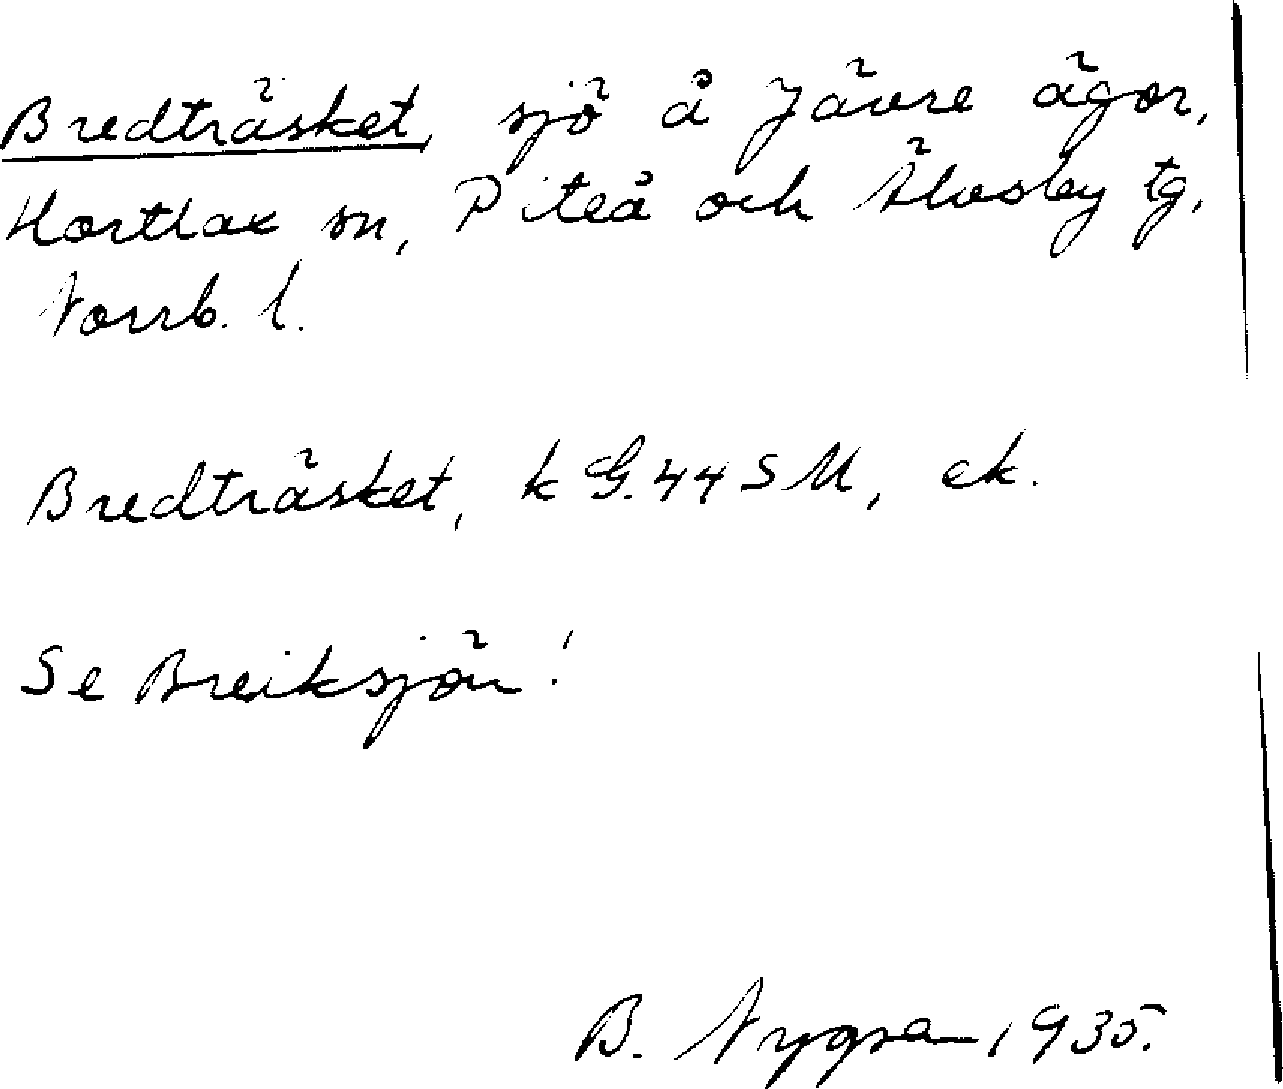 Bredträsket, sjö å Jävre ägor,
Hortlax sn, Piteå och Älvsby tg,
Norrb. l.
Bredträsket, k G.44 S M, ek.
Se Breiksjön!
B. Nygren 1935.